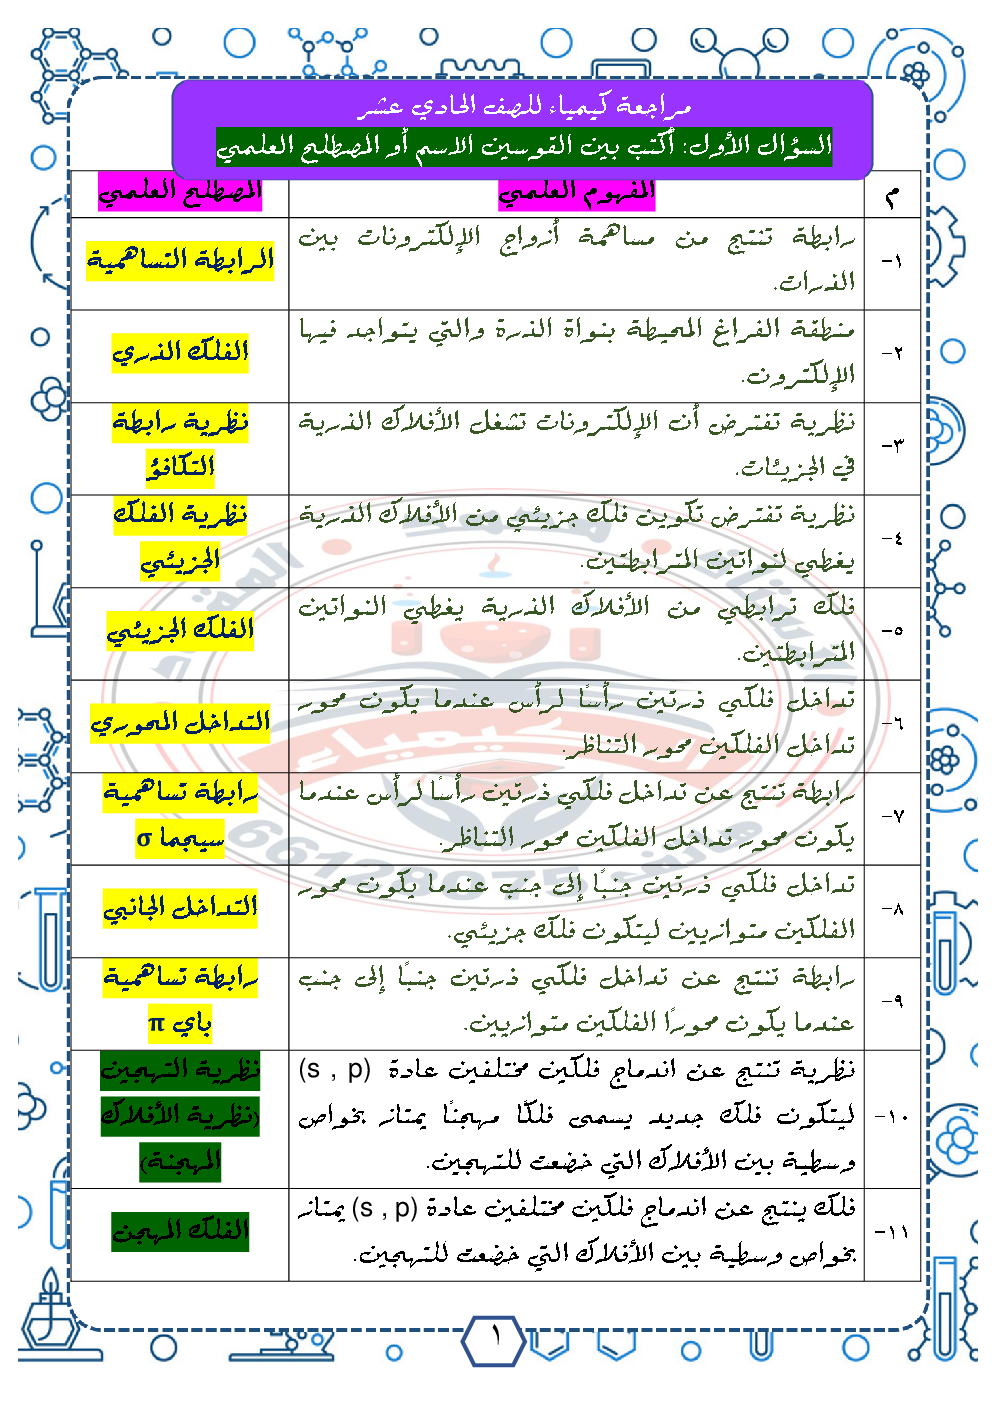 مراجعة كيمياء للصف الحادي عشر
السؤال الأول: أكتب بين القوسين الاسم أو المصطلح العلمي
م
المفهوم العلمي
المصطلح العلمي
١-
رابطة تنتج من مساهمة أزواج الإلكترونات بين
الذرات.
الرابطة التساهمية
٢-
منطقة الفراغ المحيطة بنواة الذرة والتي يتواجد فيها
الإلكترون.
الفلك الذري
٣-
نظرية تفترض أن الإلكترونات تشغل الأفلاك الذرية
في الجزيئات.
نظرية رابطة
التكافؤ
٤-
نظرية تفترض تكوين فلك جزيئي من الأفلاك الذرية
يغطي لنواتين المترابطتين.
نظرية الفلك
الجزيئي
٥-
فلك ترابطي من الأفلاك الذرية يغطي النواتين
المترابطتين.
الفلك الجزيئي
٦-
تداخل فلكي ذرتين رأسًا لرأس عندما يكون محور
تداخل الفلكين محور التناظر.
التداخل المحوري
٧-
رابطة تنتج عن تداخل فلكي ذرتين رأسًا لرأس عندما
يكون محور تداخل الفلكين محور التناظر.
رابطة تساهمية
سيجما σ
٨-
تداخل فلكي ذرتين جنبًا إلى جنب عندما يكون محور
الفلكين متوازيين ليتكون فلك جزيئي.
التداخل الجانبي
٩-
رابطة تنتج عن تداخل فلكي ذرتين جنبًا إلى جنب
عندما يكون محورًا الفلكين متوازيين.
رابطة تساهمية
باي π
١٠-
نظرية تنتج عن اندماج فلكين مختلفين عادة (s , p)
ليتكون فلك جديد يسمى فلكًا مهجنًا يمتاز بخواص
وسطية بين الأفلاك التي خضعت للتهجين.
نظرية التهجين
(نظرية الأفلاك
المهجنة)
١١-
فلك ينتج عن اندماج فلكين مختلفين عادة (s , p) يمتاز
بخواص وسطية بين الأفلاك التي خضعت للتهجين.
الفلك المهجن
١